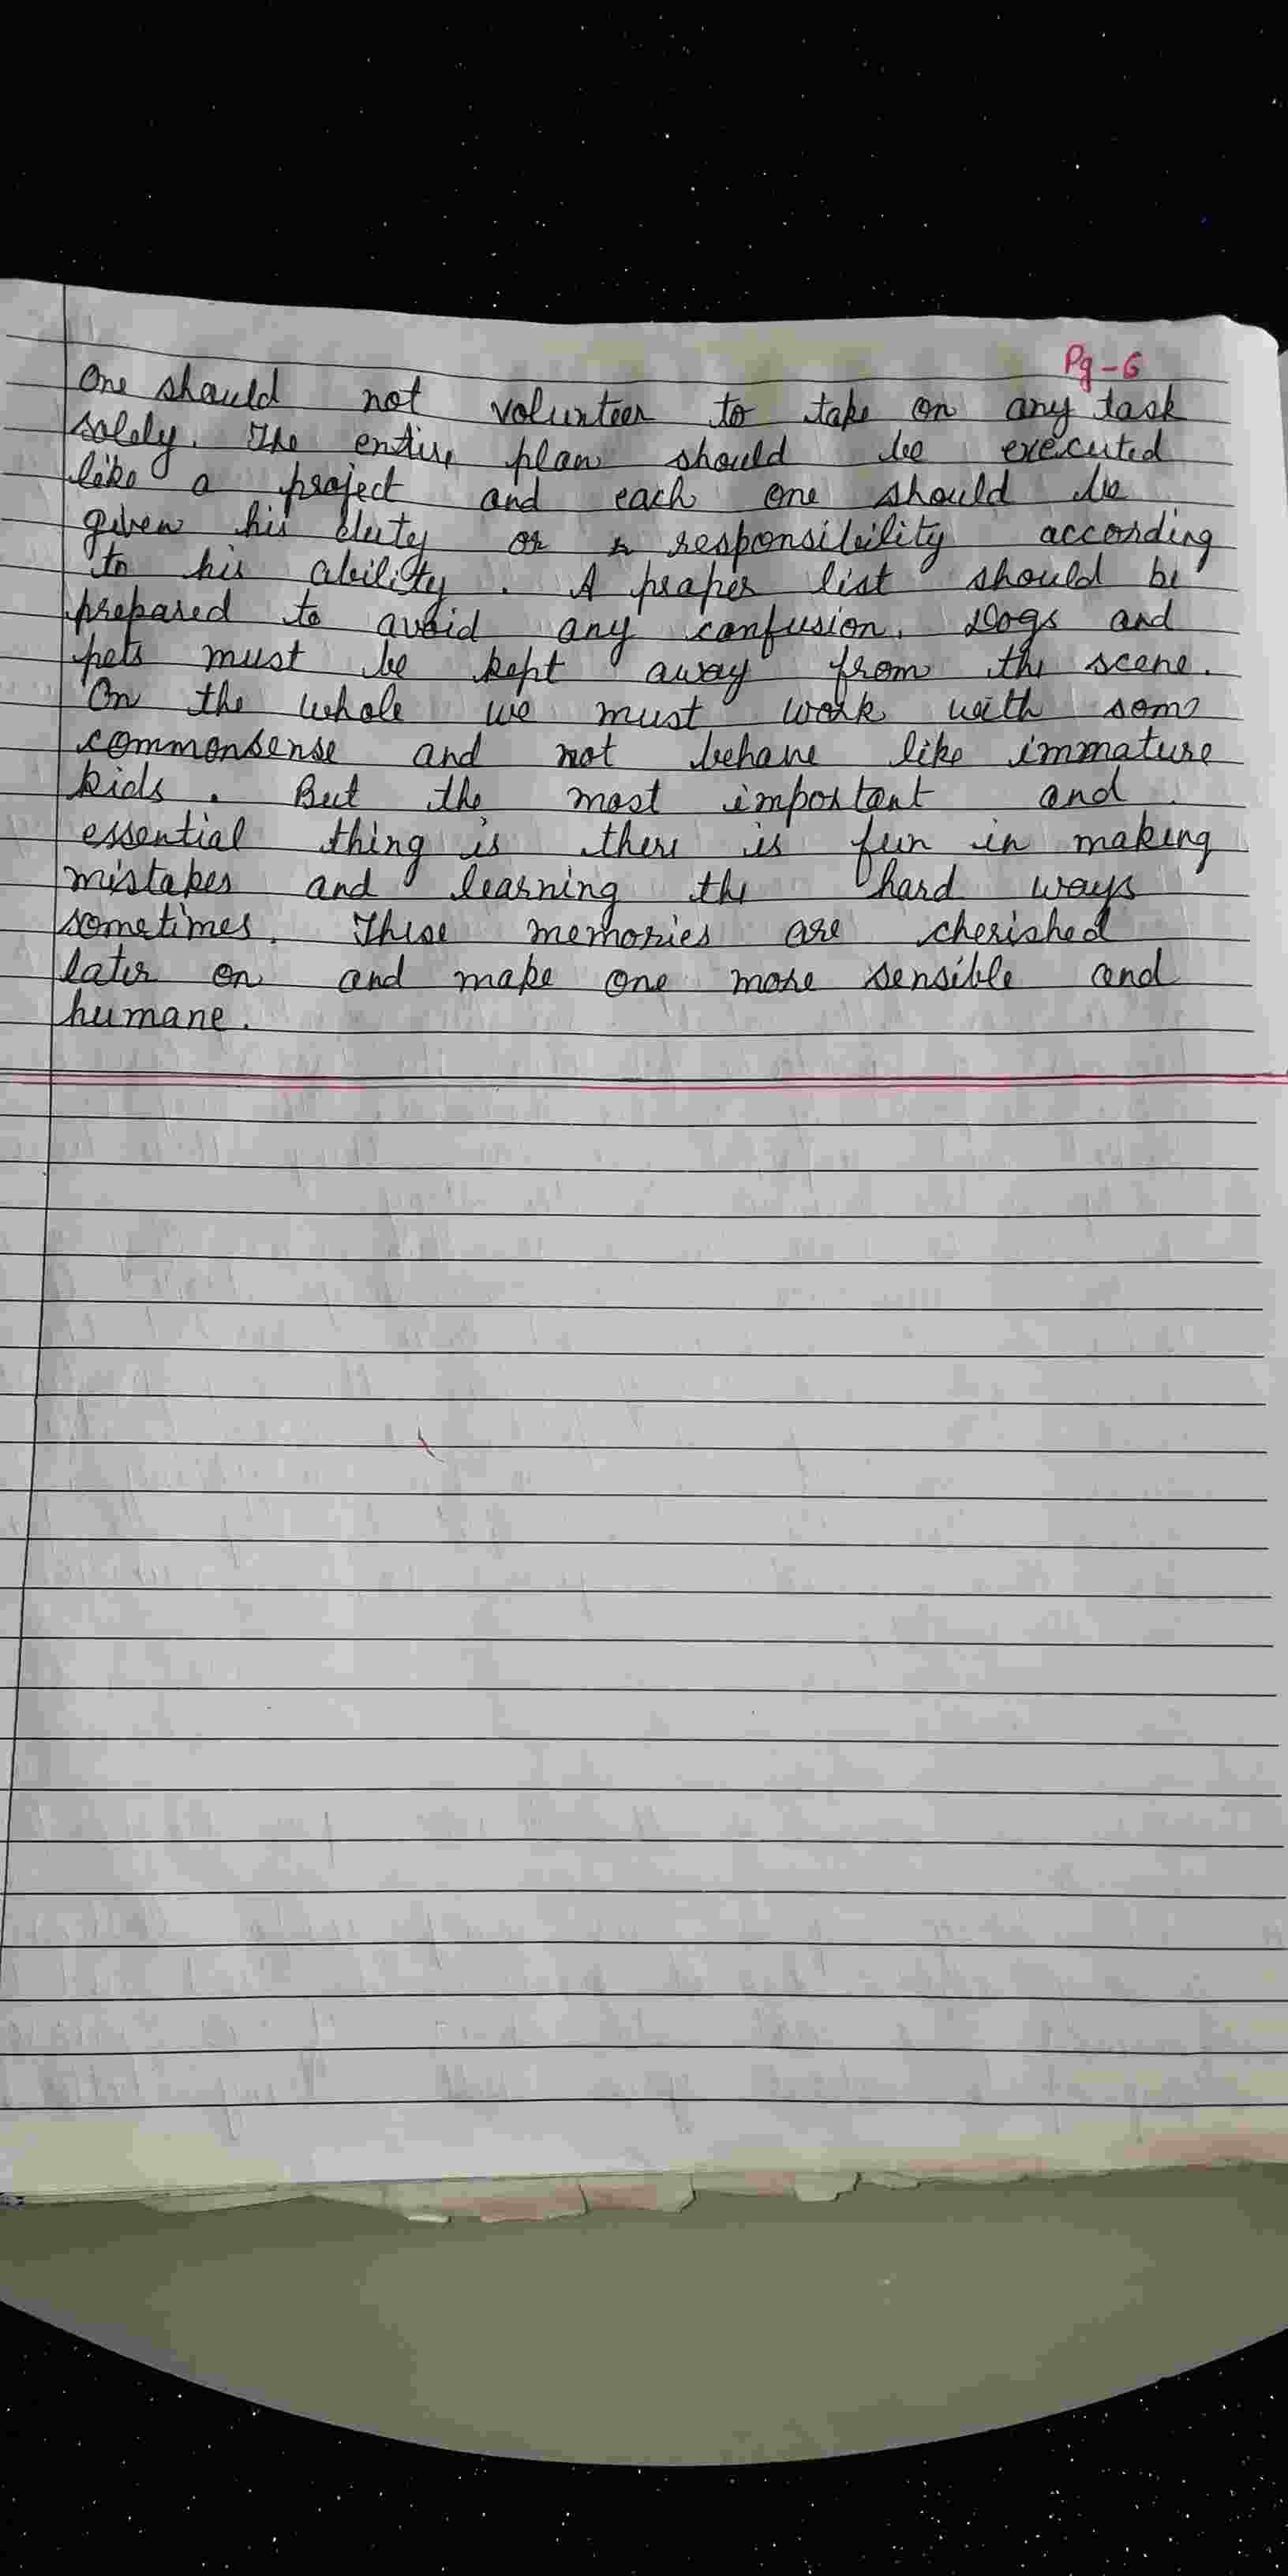 Pg-6
One should not volunteer to take on any task
solely. The entire plan should be executed
like a project and each one should be
given his duty or responsibility according
to his ability. A proper list should be
prepared to avoid any confusion. Dogs and
pets must be kept away from the scene.
On the whole we must work with some
commonsense and not behave like immature
kids. But the most important and
essential thing is there is fun in making
mistakes and learning the hard ways
sometimes. These memories are cherished
later on and make one more sensible and
humane.